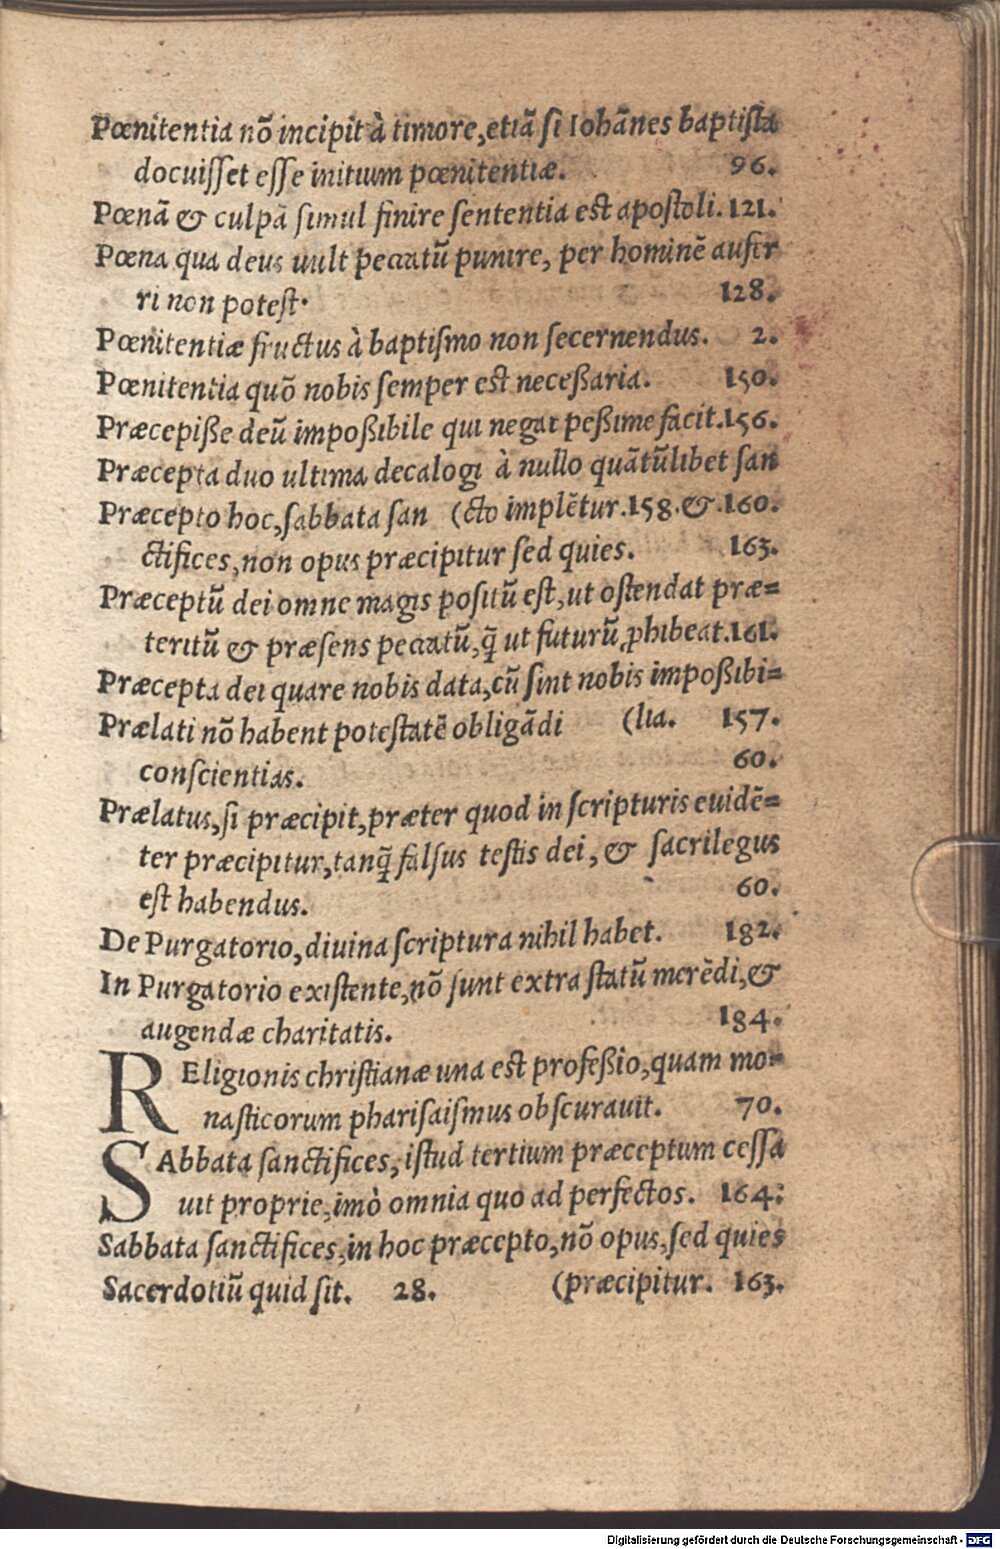 Pœnitentia nõ incipit à timore, etiã ſi Iohãnes baptiſta
docuiſſet eſſe initium pœnitentiæ. 96.
Pœnã & culpã ſimul finire ſententia eſt apoſtoli. 121.
Pœna qua deus uult peccatũ punire, per hominẽ aufer
ri non poteſt. 128.
Pœnitentiæ fructus à baptiſmo non ſecernendus. 2.
Pœnitentia quõ nobis ſemper eſt neceßaria. 150.
Præcepiße deũ impoßibile qui negat peßime facit. 156.
Præcepta duo ultima decalogi à nullo quãtũlibet ſan
Præcepto hoc, ſabbata ſan (cto implẽtur. 158. &. 160.
ctifices, non opus præcipitur ſed quies. 163.
Præceptũ dei omne magis poſitũ eſt, ut oſtendat præ=
teritũ & præſens peccatũ, q̃ ut futurũ ꝓhibeat. 161.
Præcepta dei quare nobis data, cũ ſint nobis impoßibi=
Prælati nõ habent poteſtatẽ obligãdi (lia. 157.
conſcientias. 60.
Prælatus, ſi præcipit, præter quod in ſcripturis euidẽ=
ter præcipitur, tanq̃ falſus teſtis dei, & ſacrilegus
eſt habendus. 60.
De Purgatorio, diuina ſcriptura nihil habet. 182.
In Purgatorio exiſtente, nõ ſunt extra ſtatũ merẽdi, &
augendæ charitatis. 184.
REligionis chriſtianæ una eſt profeßio, quam mo=
naſticorum phariſaiſmus obſcurauit. 70.
SAbbata ſanctifices, iſtud tertium præceptum ceſſa
uit proprie, imò omnia quo ad perfectos. 164.
Sabbata ſanctifices, in hoc præcepto, nõ opus, ſed quies
Sacerdotiũ quid ſit. 28. (præcipitur. 163.
Digitalisierung gefördert durch die Deutsche Forschungsgemeinschaft - DFG